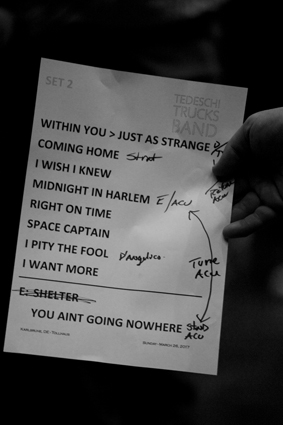 SET 2
TEDESCHI
TRUCKS
BAND
WITHIN YOU > JUST AS STRANGE
COMING HOME Strat
I WISH I KNEW
MIDNIGHT IN HARLEM E/ACU
RIGHT ON TIME
SPACE CAPTAIN
I PITY THE FOOL D'Angelico
I WANT MORE
Tune
ACU
E: SHELTER
YOU AINT GOING NOWHERE STAND
ACU
SUNDAY - MARCH 26, 2017